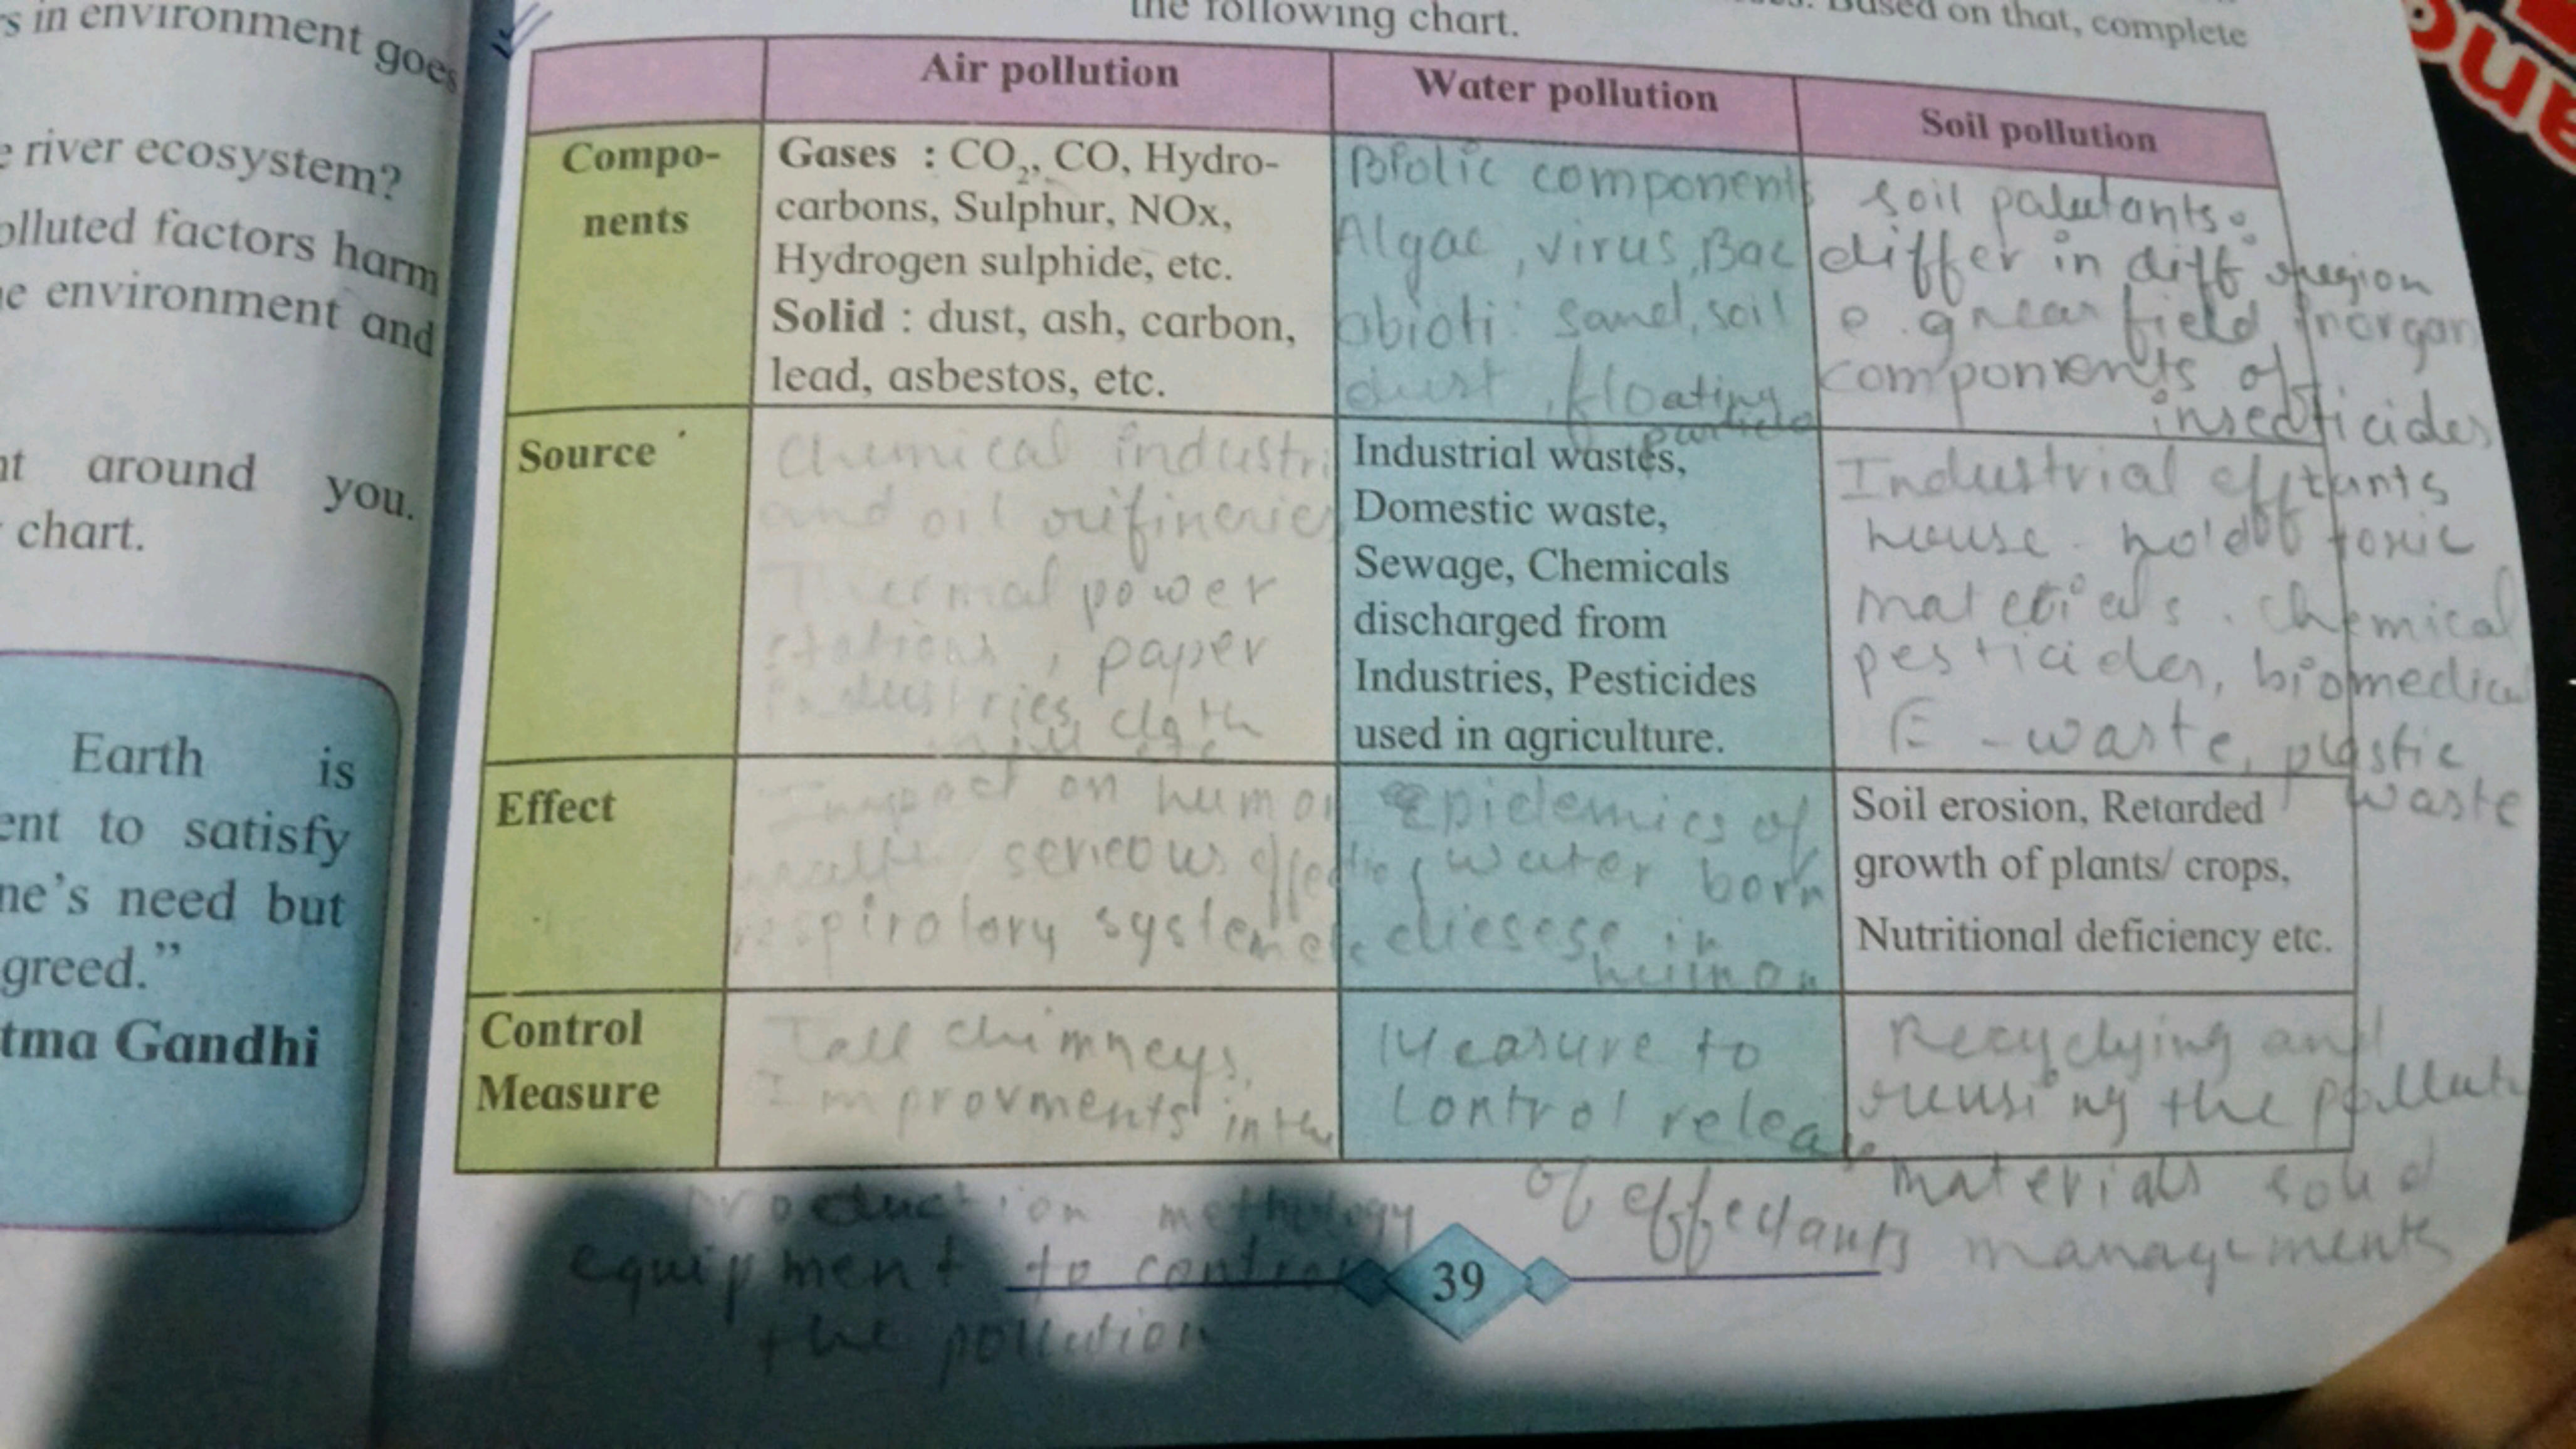 s in environment goes
e river ecosystem?
olluted factors harm
e environment and
nt around you.
chart.
Earth is
ent to satisfy
ne's need but
greed."
tma Gandhi
the following chart.
Based on that, complete
Air pollution
Water pollution
Soil pollution
Compo-
nents
Gases : CO₂, CO, Hydro-
carbons, Sulphur, NOx,
Hydrogen sulphide, etc.
Solid : dust, ash, carbon,
lead, asbestos, etc.
Biotic components
Algae, virus, Bac
abioti: sand, soil
dust, floating
particle
soil palutants.
differ in diff region
e.g near field, inorgan
components of
insecticides
Source
Chemical industri
and oil rifineries
Thermal power
stations, paper
industries, cloth
mill etc
Industrial wastes,
Domestic waste,
Sewage, Chemicals
discharged from
Industries, Pesticides
used in agriculture.
Industrial
house hold toxic
materials. chemical
pesticides, biomedica
E-waste, plastic
waste
Effect
Impact on human
health serieous effect
respirotory system etc
Epidemics of
water born
diesese in
human
Soil erosion, Retarded
growth of plants/ crops,
Nutritional deficiency etc.
Control
Measure
Tall chimneys,
Improvments in the
production
equipment to control
the pollution
Measure to
control release
of effectants
Recyclying and
reusing the pollut
materials solid
managements
39